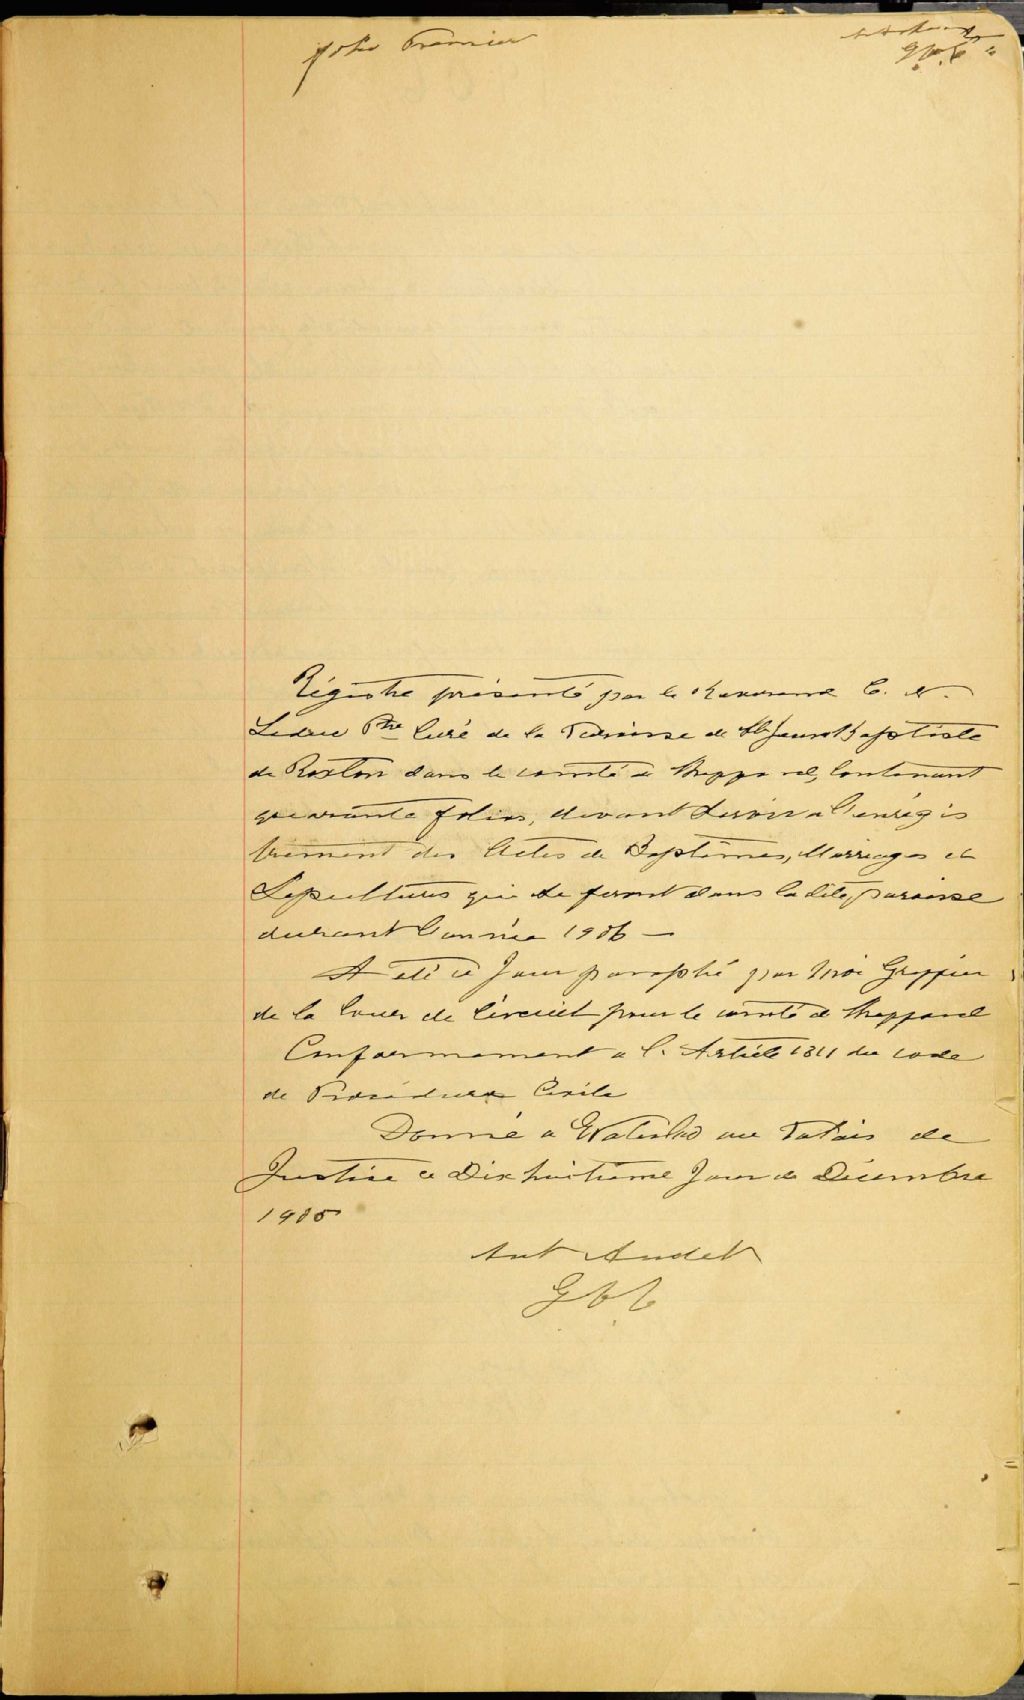 folio Premier
Ant Audet
G C C
Régistre présenté par le Reverend C. N.
Leduc Ptre Curé de la Paroisse de St Jean Baptiste
de Roxton dans le comté de Shefford, Contenant
quarante folios, devant servir a l'enrégis
trement des Actes de Baptêmes, Marriages et
Sepultures qui se feront dans la dite, paroisse
durant l'année 1906 —
A été ce Jour paraphé par moi Greffier
de la Cour de Circuit pour le comté de Shefford
Conformement a l'Article 1311 du code
de Procédure Civile
Donné a Waterloo au Palais de
Justice ce Dix huitième Jour de Décembre
1905
Ant Audet
G C C